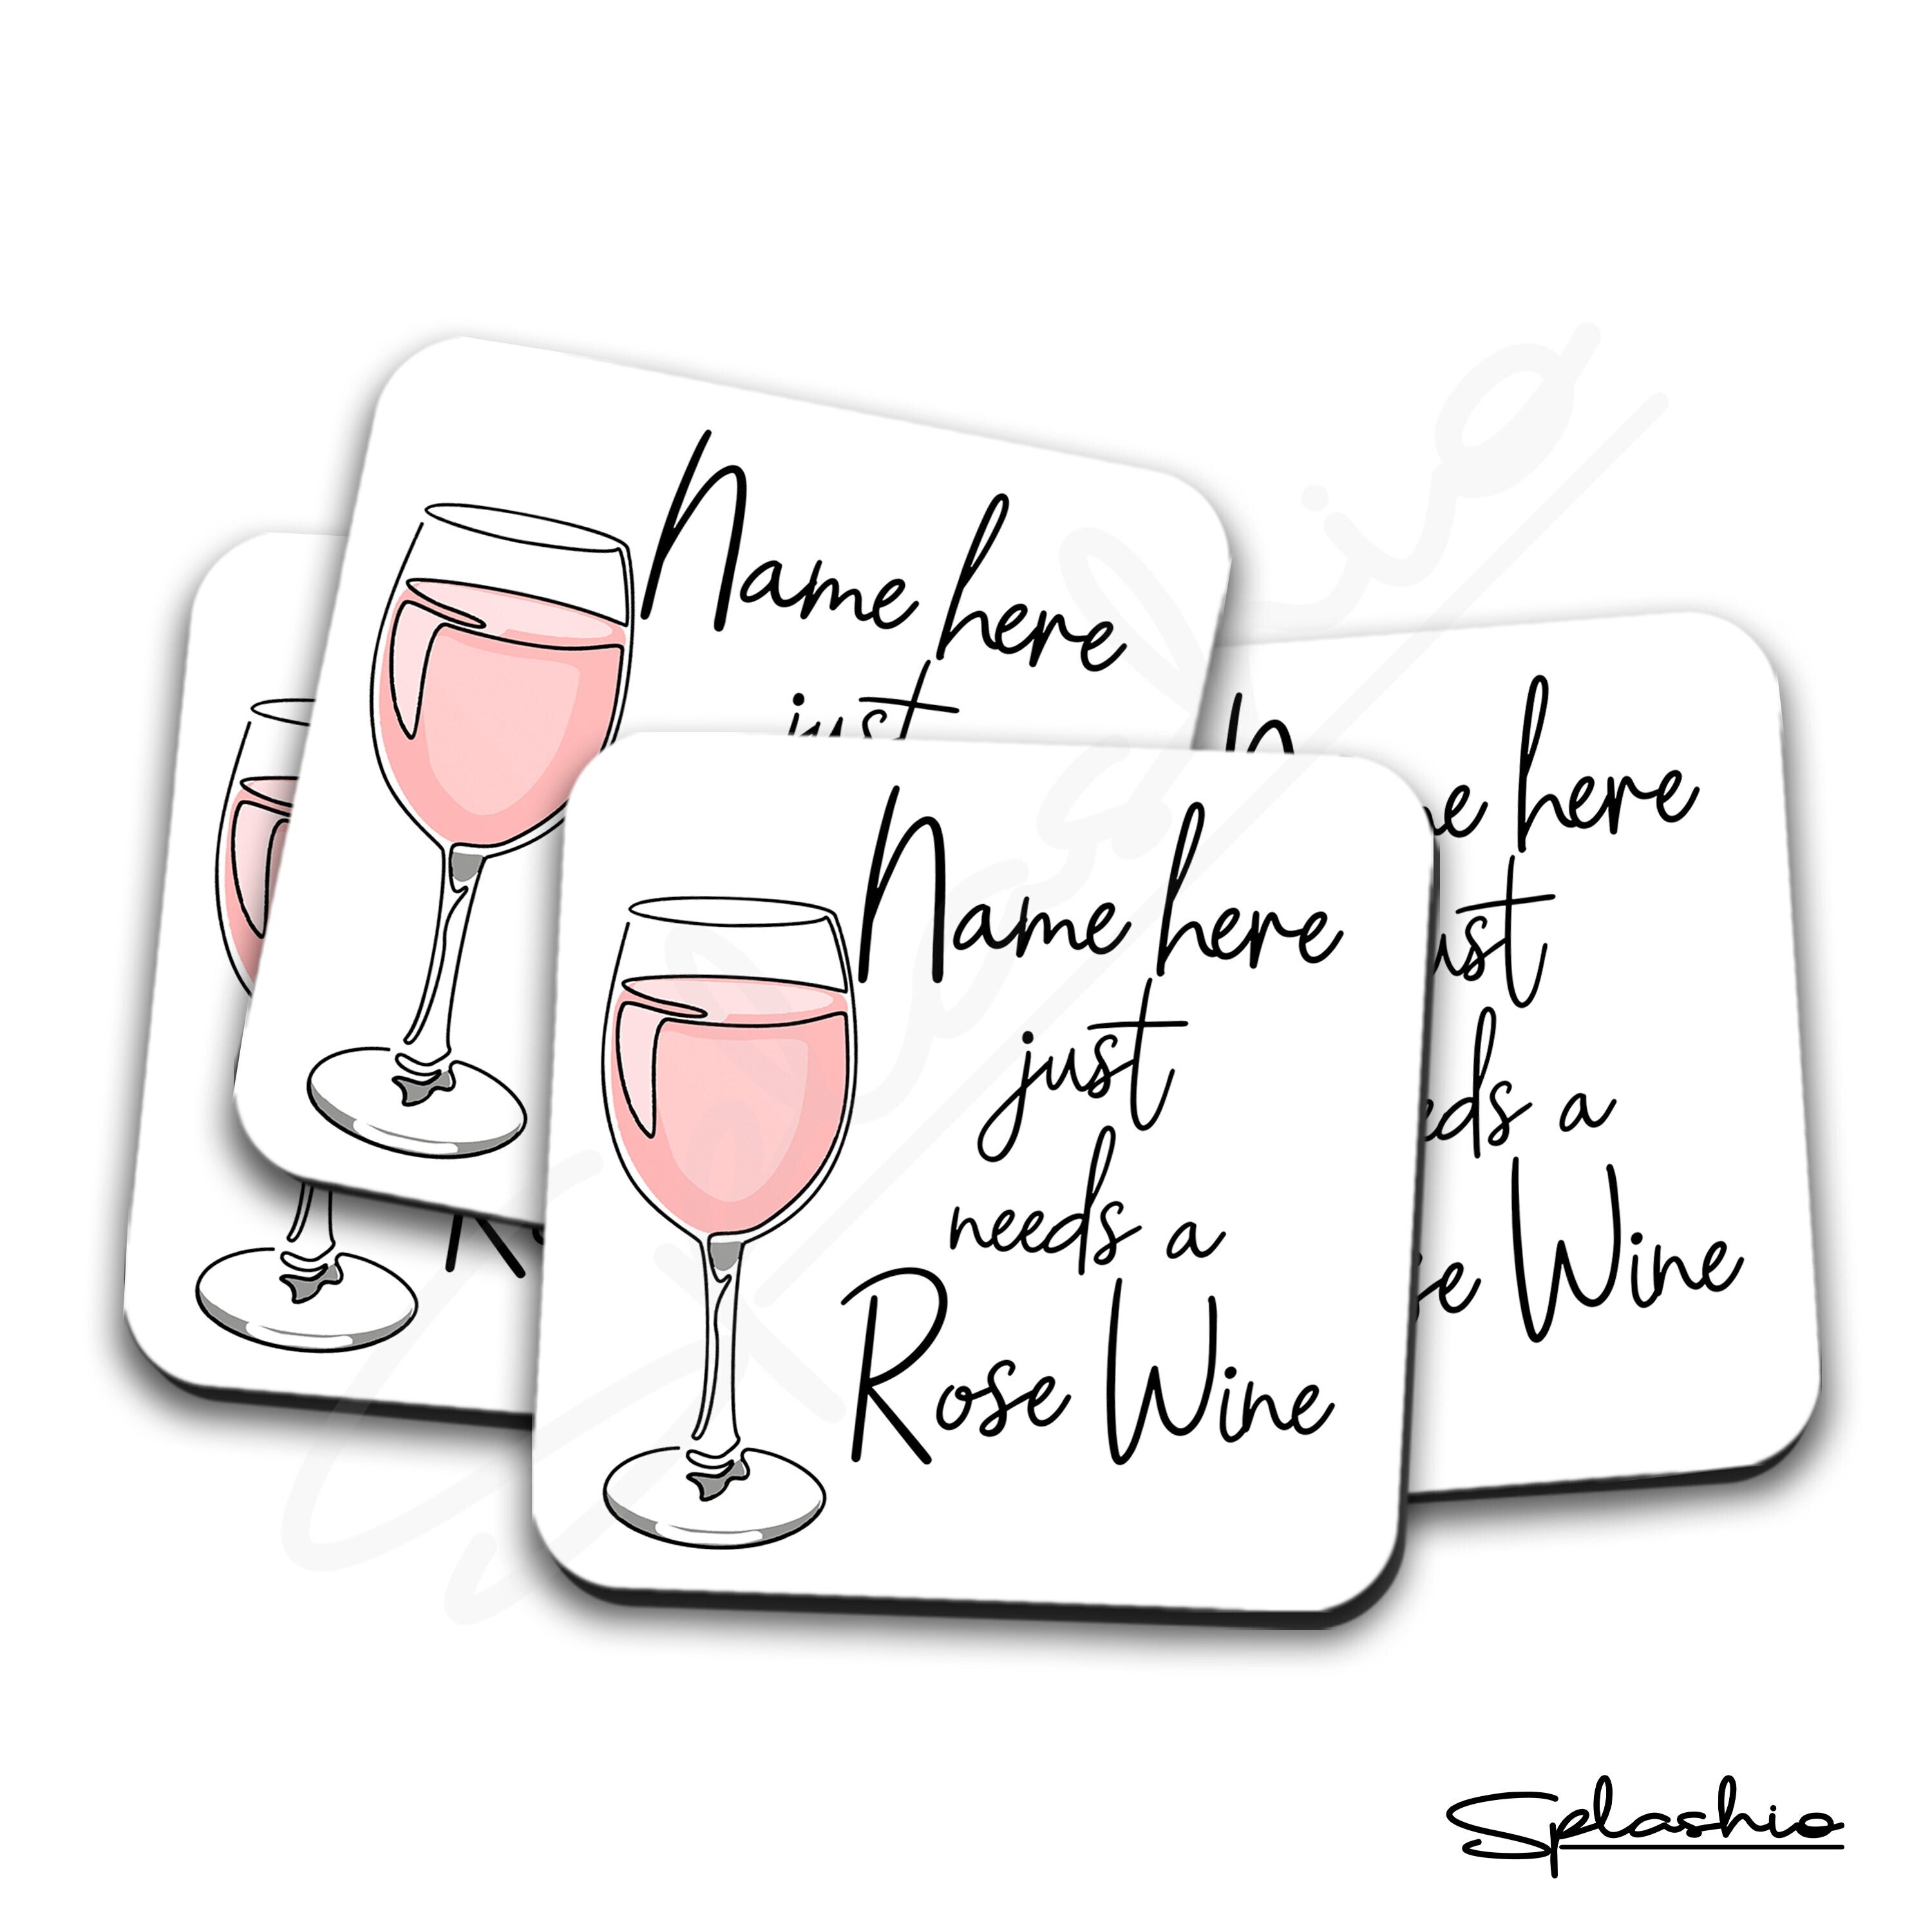 Name here
just
Name here
just
needs a
Rose Wine
here
needs a
Wine
Splashio
Splashio